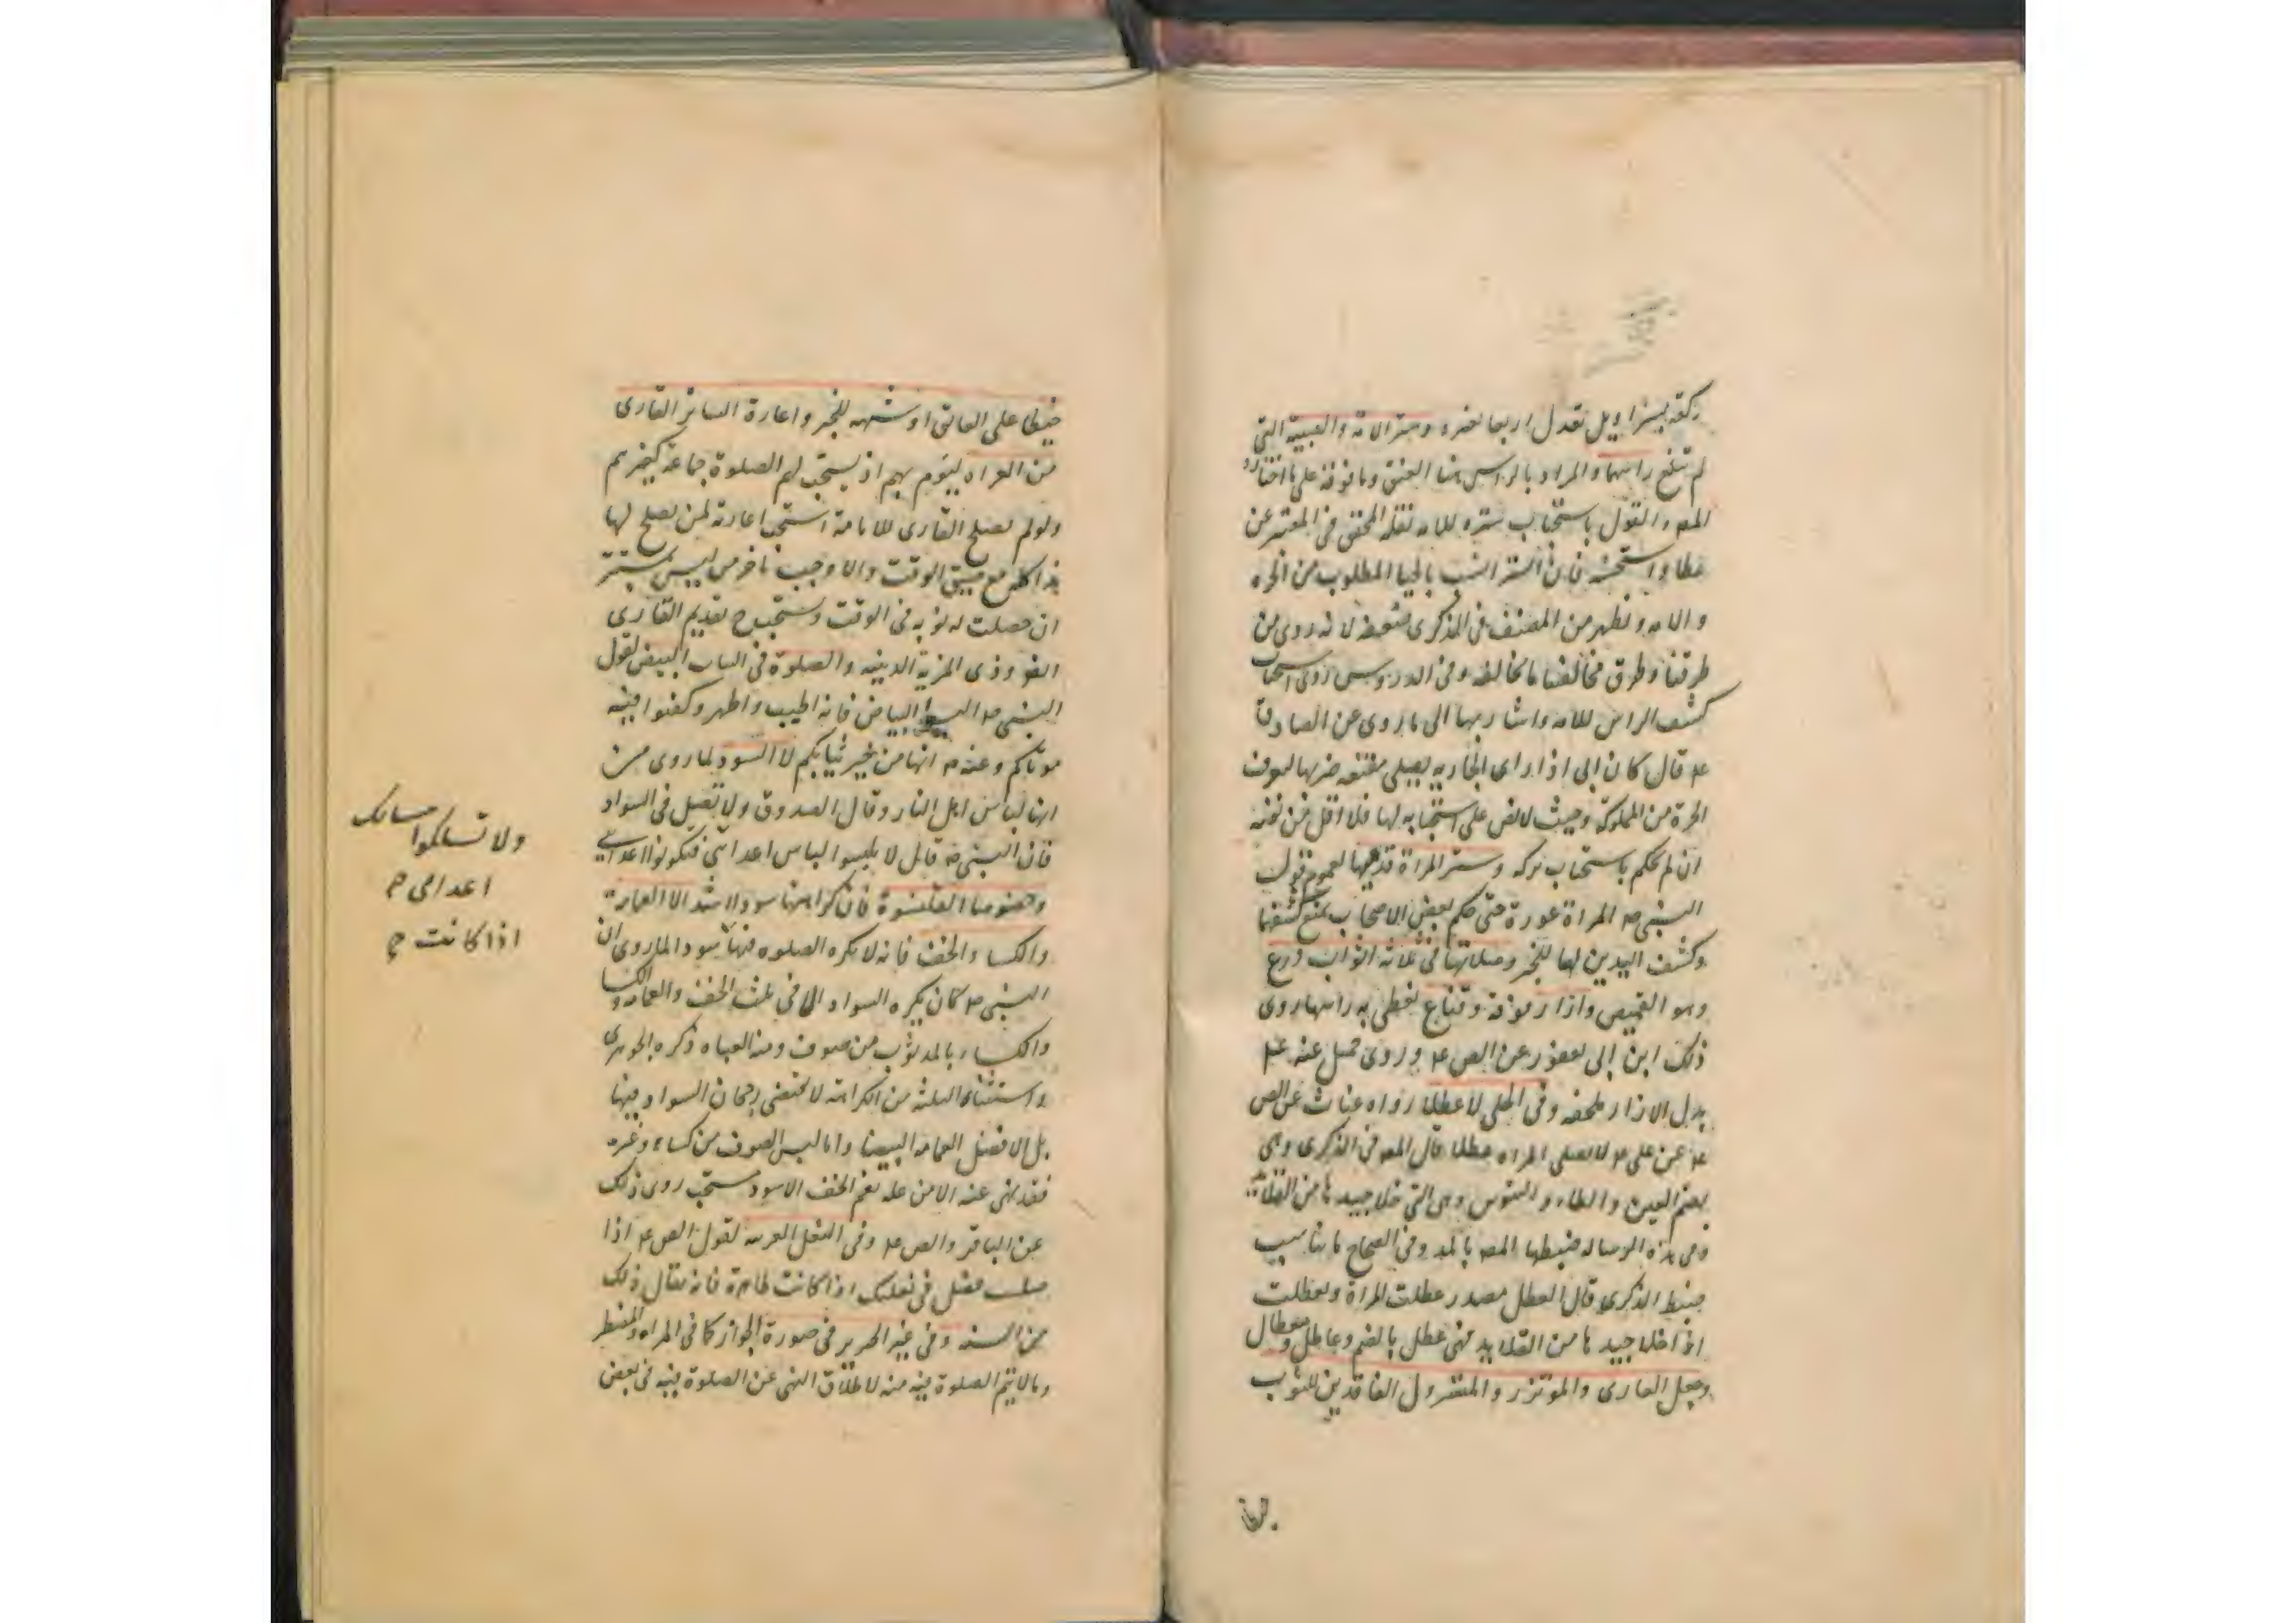 ركعة بسراويل تعدل اربعا بغيره وستر الامة والصبية التي
لم تبلغ راسهما والمراد بالراس هنا العنق وما فوقه على ما اختاره
المصـ والقول باستحباب ستره للامه نقله المحقق في المعتبر عن
عطا واستحسنه فان الستر انسب بالحيا المطلوب من الحره
والامه ويظهر من المصنف في الذكرى ضعفه لانه روى من
طرقنا وطرق مخالفنا ما يخالفه وفي الدروس روى استحباب
كشف الراس للامه واشار بها الى ما روى عن الصادق
عـ قال كان ابى اذا راى الجاريه تصلى مقنعه ضربها لتعرف
الحرة من المملوكة وحيث لا نص على استحبابه لها فلا اقل من
ان لم نحكم باستحباب تركه وستر المراة قدميها لعموم قول
النبى صـ المراة عورة حتى حكم بعض الاصحاب بمنع كشفهما
وكشف اليدين لها للخبر وصلاتها فى ثلاثة اثواب درع
وهو القميص وازار فوقه وقناع تغطى به راسها روى
ذلك ابن ابى يعفور عن الصـ عـ وروى جميل عنه عـ
بدل الازار ملحفه وفى الحلى لا عطلا رواه غياث عن الصـ
عـ عن على عـ لا تصلى المراه عطلا قال المصـ فى الذكرى وهى
بضم العين والطاء والتنوين وهى التى خلا جيدها من القلائد
وفى هذه الرساله ضبطها المصـ بالمد وفى الصحاح ما يناسب
ضبط الذكرى قال العطل مصدر عطلت المراة وتعطلت
اذا خلا جيدها من القلايد فهى عطل بالضم وعاطل ومعطال
وجعل العارى والموتزر والمتسرول الفاقدين للثوب
خيطا على العاتق او شبهه للخبر واعارة الساتر القارى
من العراه ليؤم بهم اذ يستحب لهم الصلوة جماعة كغيرهم
ولو لم يصلح القارى للامامة استحب اعارته لمن يصلح لها
هذا كله مع ضيق الوقت والا وجب تاخر من ليس بمستتر
ان حصلت له نوبه فى الوقت ويستحب ح تقديم القارى
وذى المزية الدينيه والصلوة فى الثياب البيض لقول
النبى صـ البسوا البياض فانه اطيب واطهر وكفنوا فيه
موتاكم وعنه صـ انها من خير ثيابكم لا السود لما روى من
انها لباس اهل النار وقال الصدوق ولا تصل فى السواد
فان النبى صـ قال لا يلبسوا لباس اعدائى فتكونوا اعدائى
وخصوصا القلنسوة فان كراهتها سودا اشد الا العمامة
والكسا والخف فانه لا يكره الصلوه فيها سودا لما روى ان
النبى صـ كان يكره السواد الا فى ثلث الخف والعمامه والكسا
والكساء بالمد ثوب من صوف ومنه العباه ذكره الجوهرى
واستثناء الثلثه من الكراهة لا يقتضى رجحان السواد فيها
بل الافضل العمامه البيضا واما لبس الصوف من كساء وغيره
فقد نهى عنه الا من علة نعم الخف الاسود مستحب روى ذلك
عن الباقر والصـ عـ وفى النعل العربيه لقول الصـ عـ اذا
صليت فصل فى نعليك اذا كانت طاهرة فانه يقال ذلك
من السنه وفى غير الحرير فى صورة الجواز كما فى المراه والمضطر
وما لا يتم الصلوة فيه منه لاطلاق النهى عن الصلوة فيه فى بعض
ولا تسلكوا مسالك
اعدائى صح
اذا كانت ح